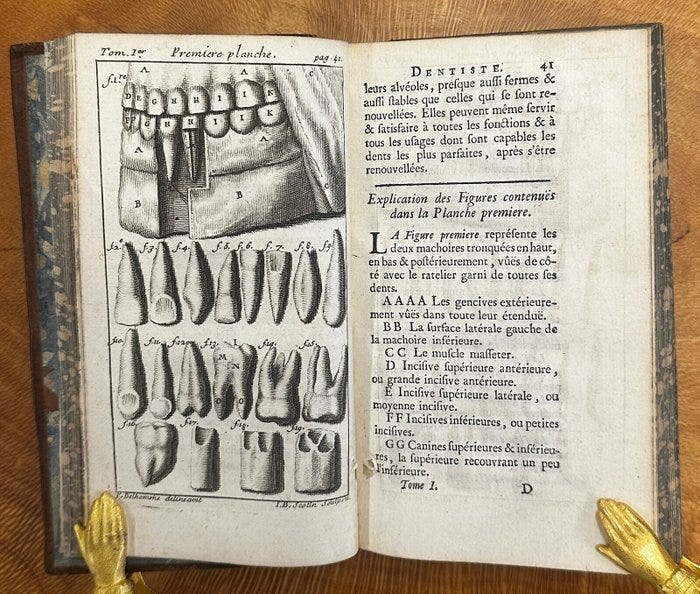 Tom. I.er Premiere planche. pag. 41.
f.1.re
A A C
D E G H H I I K
F F G H H I I K
A A
B B C
f.2.e f.3. f.4. f.5. f.6. f.7. f.8. f.9.
f.10. f.11. f.12. f.13. f.14. f.15.
L
M N
O O
f.16. f.17. f.18. f.19.
Belhomme delineavit I.B. Scotin Sculp.
DENTISTE. 41
leurs alvéoles, presque aussi fermes &
aussi stables que celles qui se sont re-
nouvellées. Elles peuvent même servir
& satisfaire à toutes les fonctions & à
tous les usages dont sont capables les
dents les plus parfaites, après s'être
renouvellées.
Explication des Figures contenuës
dans la Planche premiere.
LA Figure premiere représente les
deux machoires tronquées en haut,
en bas & postérieurement, vûës de cô-
té avec le ratelier garni de toutes ses
dents.
AAAA Les gencives extérieure-
ment vûës dans toute leur étenduë.
BB La surface latérale gauche de
la machoire inférieure.
CC Le muscle masseter.
D Incisive supérieure antérieure,
ou grande incisive antérieure.
E Incisive supérieure latérale, ou
moyenne incisive.
FF Incisives inférieures, ou petites
incisives.
GG Canines supérieures & inférieu-
res, la supérieure recouvrant un peu
l'inférieure.
Tome I. D